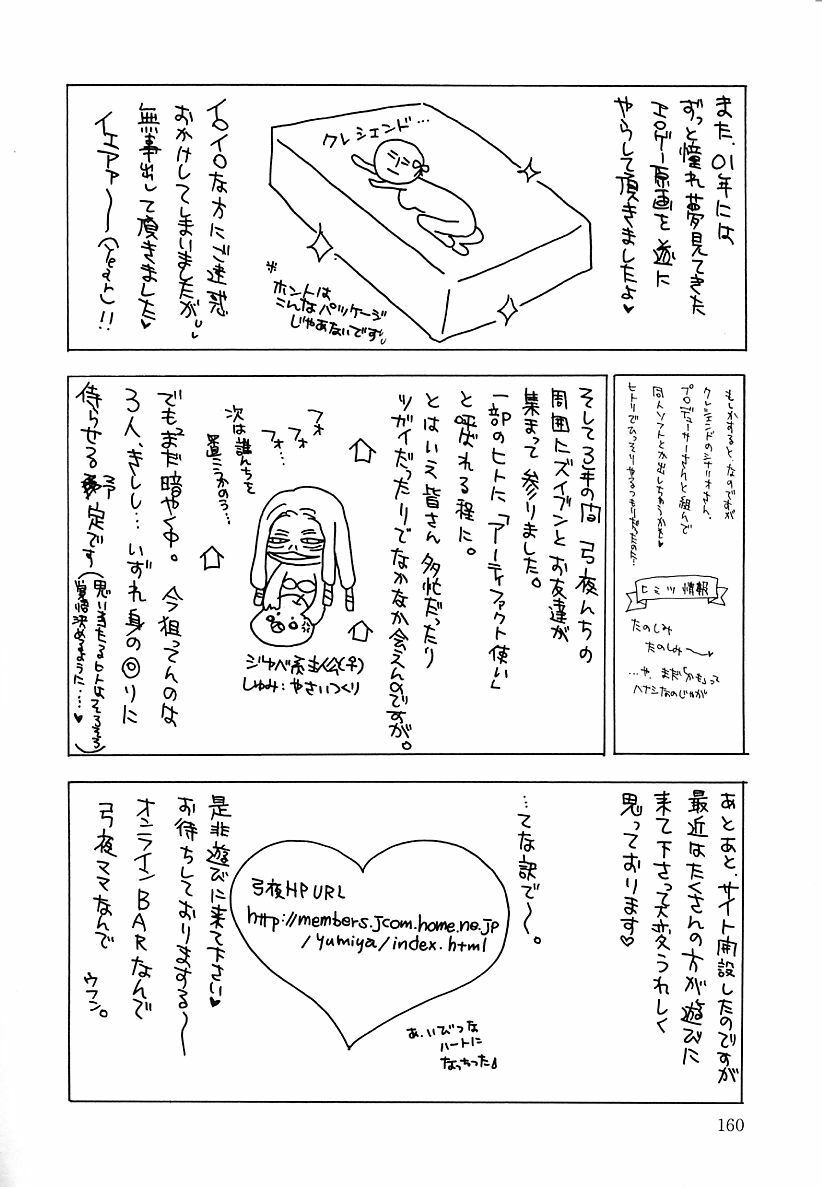 また、01年には
ずっと憧れ夢見てきた
エロゲー原画を遂に
やらして頂きましたよ♥
クレシェンド…
※ホントは
こんなパッケージ
じゃあないです
イロイロな方にご迷惑
おかけしてしまいましたが
無事出して頂きました♥
イェアァ〜〜(Yeah)!!
もしかすると、なのですが
クレシェンドのシナリオさん、
プロデューサーさんと組んで
同人ソフトとか出しちゃうかも♥
ヒトリでひっそりやるつもりだったのだ…
ヒミツ情報
たのしみ
たのしみ〜♥
…や、まだ「かも」って
ハナシなのじゃが
そして3年の間弓夜んちの
周囲にズイブンとお友達が
集まって参りました。
一部のヒトに「アーティファクト使い」
と呼ばれる程に。
とはいえ皆さん多忙だったり
ツガイだったりでなかなか会えんのですが。
フォ
フォ
フォ…
次は誰んちを
置こうかのう…
ジャベ系主人公(♀)
しゅみ:やさいつくり
でもまだ暗やく中。今狙ってんのは
3人、きしし…いずれ身の回りに
待らせる予定です
(思い当たるヒトはそろそろ
覚悟決めるように…♥)
あとあと、サイト開設したのですが
最近はたくさんの方が遊びに
来て下さって大変うれしく
思っております♥
…てな訳で〜。
弓夜HP URL
http://members.jcom.home.ne.jp
/yumiya/index.html
あ、いびつな
ハートに
なっちった
是非遊びに来て下さい♥
お待ちしておりまする〜
オンラインBARなんで
弓夜ママなんで
ウフン。
160